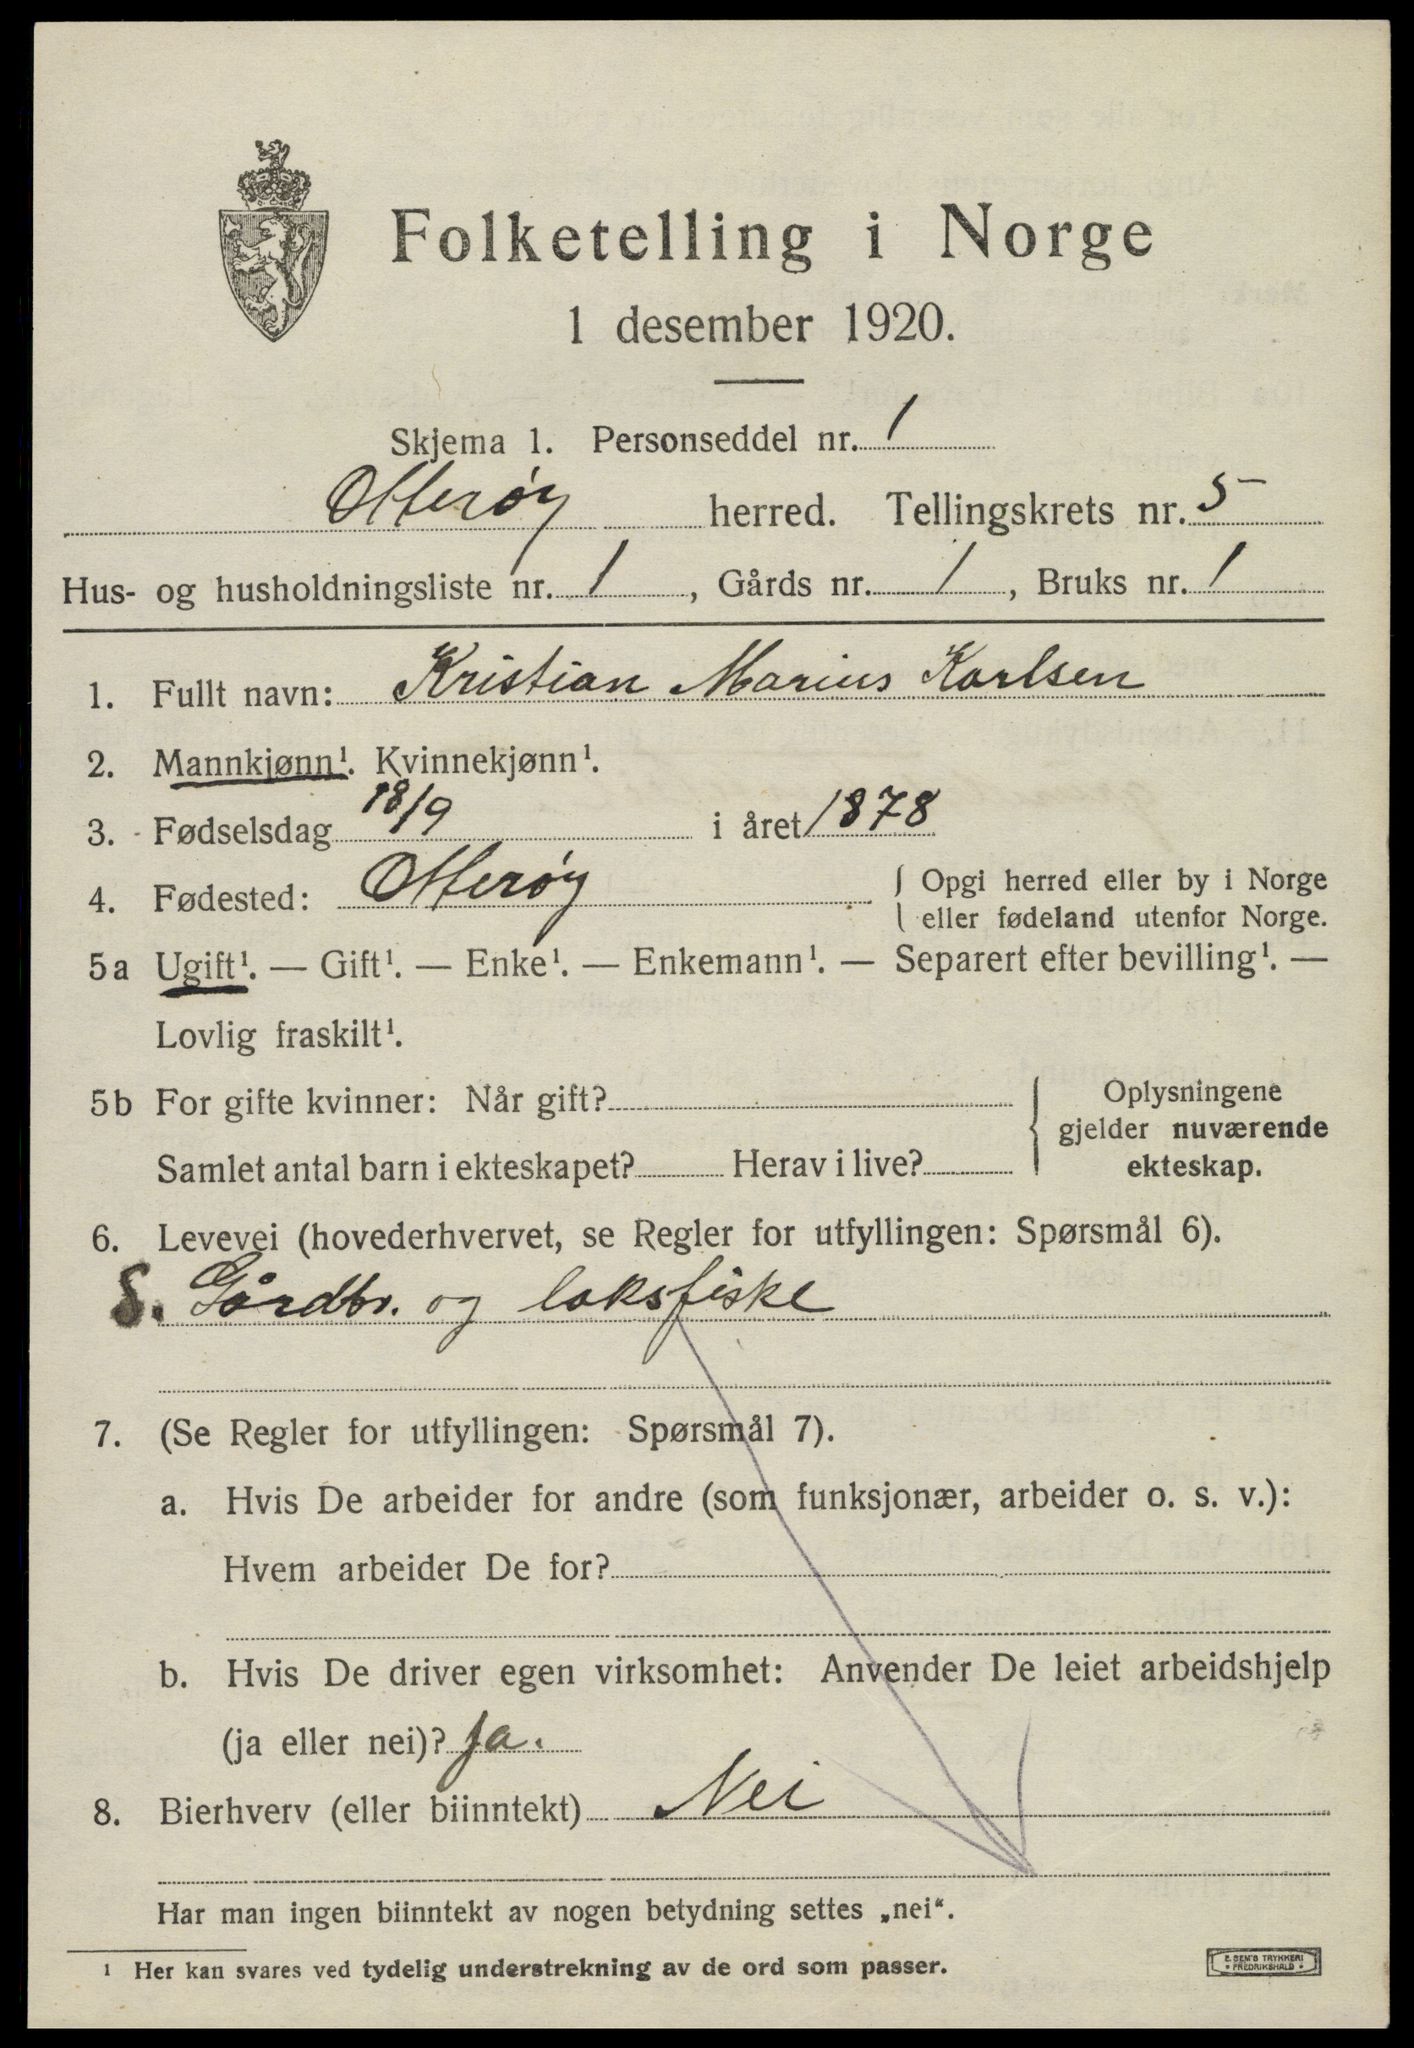 Folketelling i Norge
1 desember 1920.
Skjema 1. Personseddel nr. 1
Otterøy herred. Tellingskrets nr. 5
Hus- og husholdningsliste nr. 1, Gårds nr. 1, Bruks nr. 1
1. Fullt navn: Kristian Marius Karlsen
2. Mannkjønn¹. Kvinnekjønn¹.
3. Fødselsdag 18/9 i året 1878
4. Fødested: Otterøy { Opgi herred eller by i Norge
eller fødeland utenfor Norge.
5a Ugift¹. — Gift¹. — Enke¹. — Enkemann¹. — Separert efter bevilling¹. —
Lovlig fraskilt¹.
5b For gifte kvinner: Når gift?
Samlet antal barn i ekteskapet? Herav i live?
{ Oplysningene
gjelder nuværende
ekteskap.
6. Levevei (hovederhvervet, se Regler for utfyllingen: Spørsmål 6).
S. Gårdbr. og laksfiske
7. (Se Regler for utfyllingen: Spørsmål 7).
a. Hvis De arbeider for andre (som funksjonær, arbeider o. s. v.):
Hvem arbeider De for?
b. Hvis De driver egen virksomhet: Anvender De leiet arbeidshjelp
(ja eller nei)? Ja.
8. Bierhverv (eller biinntekt) Nei
Har man ingen biinntekt av nogen betydning settes „nei“.
¹ Her kan svares ved tydelig understrekning av de ord som passer.
E. SEM'S TRYKKERI
FREDRIKSHALD